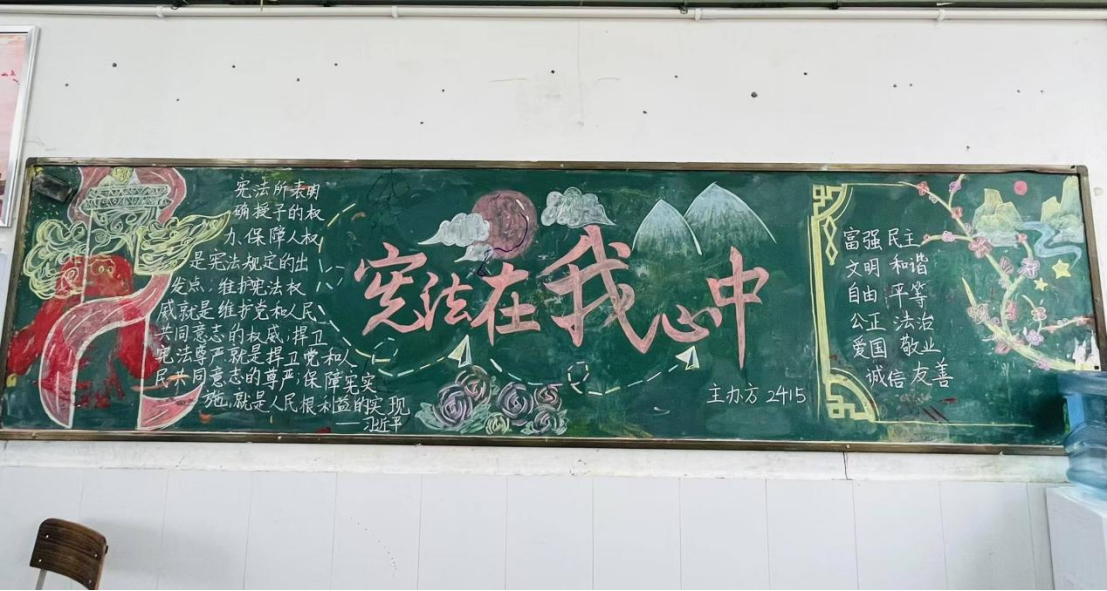 宪法所表明
确授予的权
力、保障人权
是宪法规定的出
发点,维护宪法权
威就是维护党和人民
共同意志的权威,捍卫
宪法尊严就是捍卫党和人
民共同意志的尊严,保障宪实
施,就是人民根利益的实现
——习近平
宪法在我心中
主办方 2415
富强 民主
文明 和谐
自由 平等
公正 法治
爱国 敬业
诚信 友善